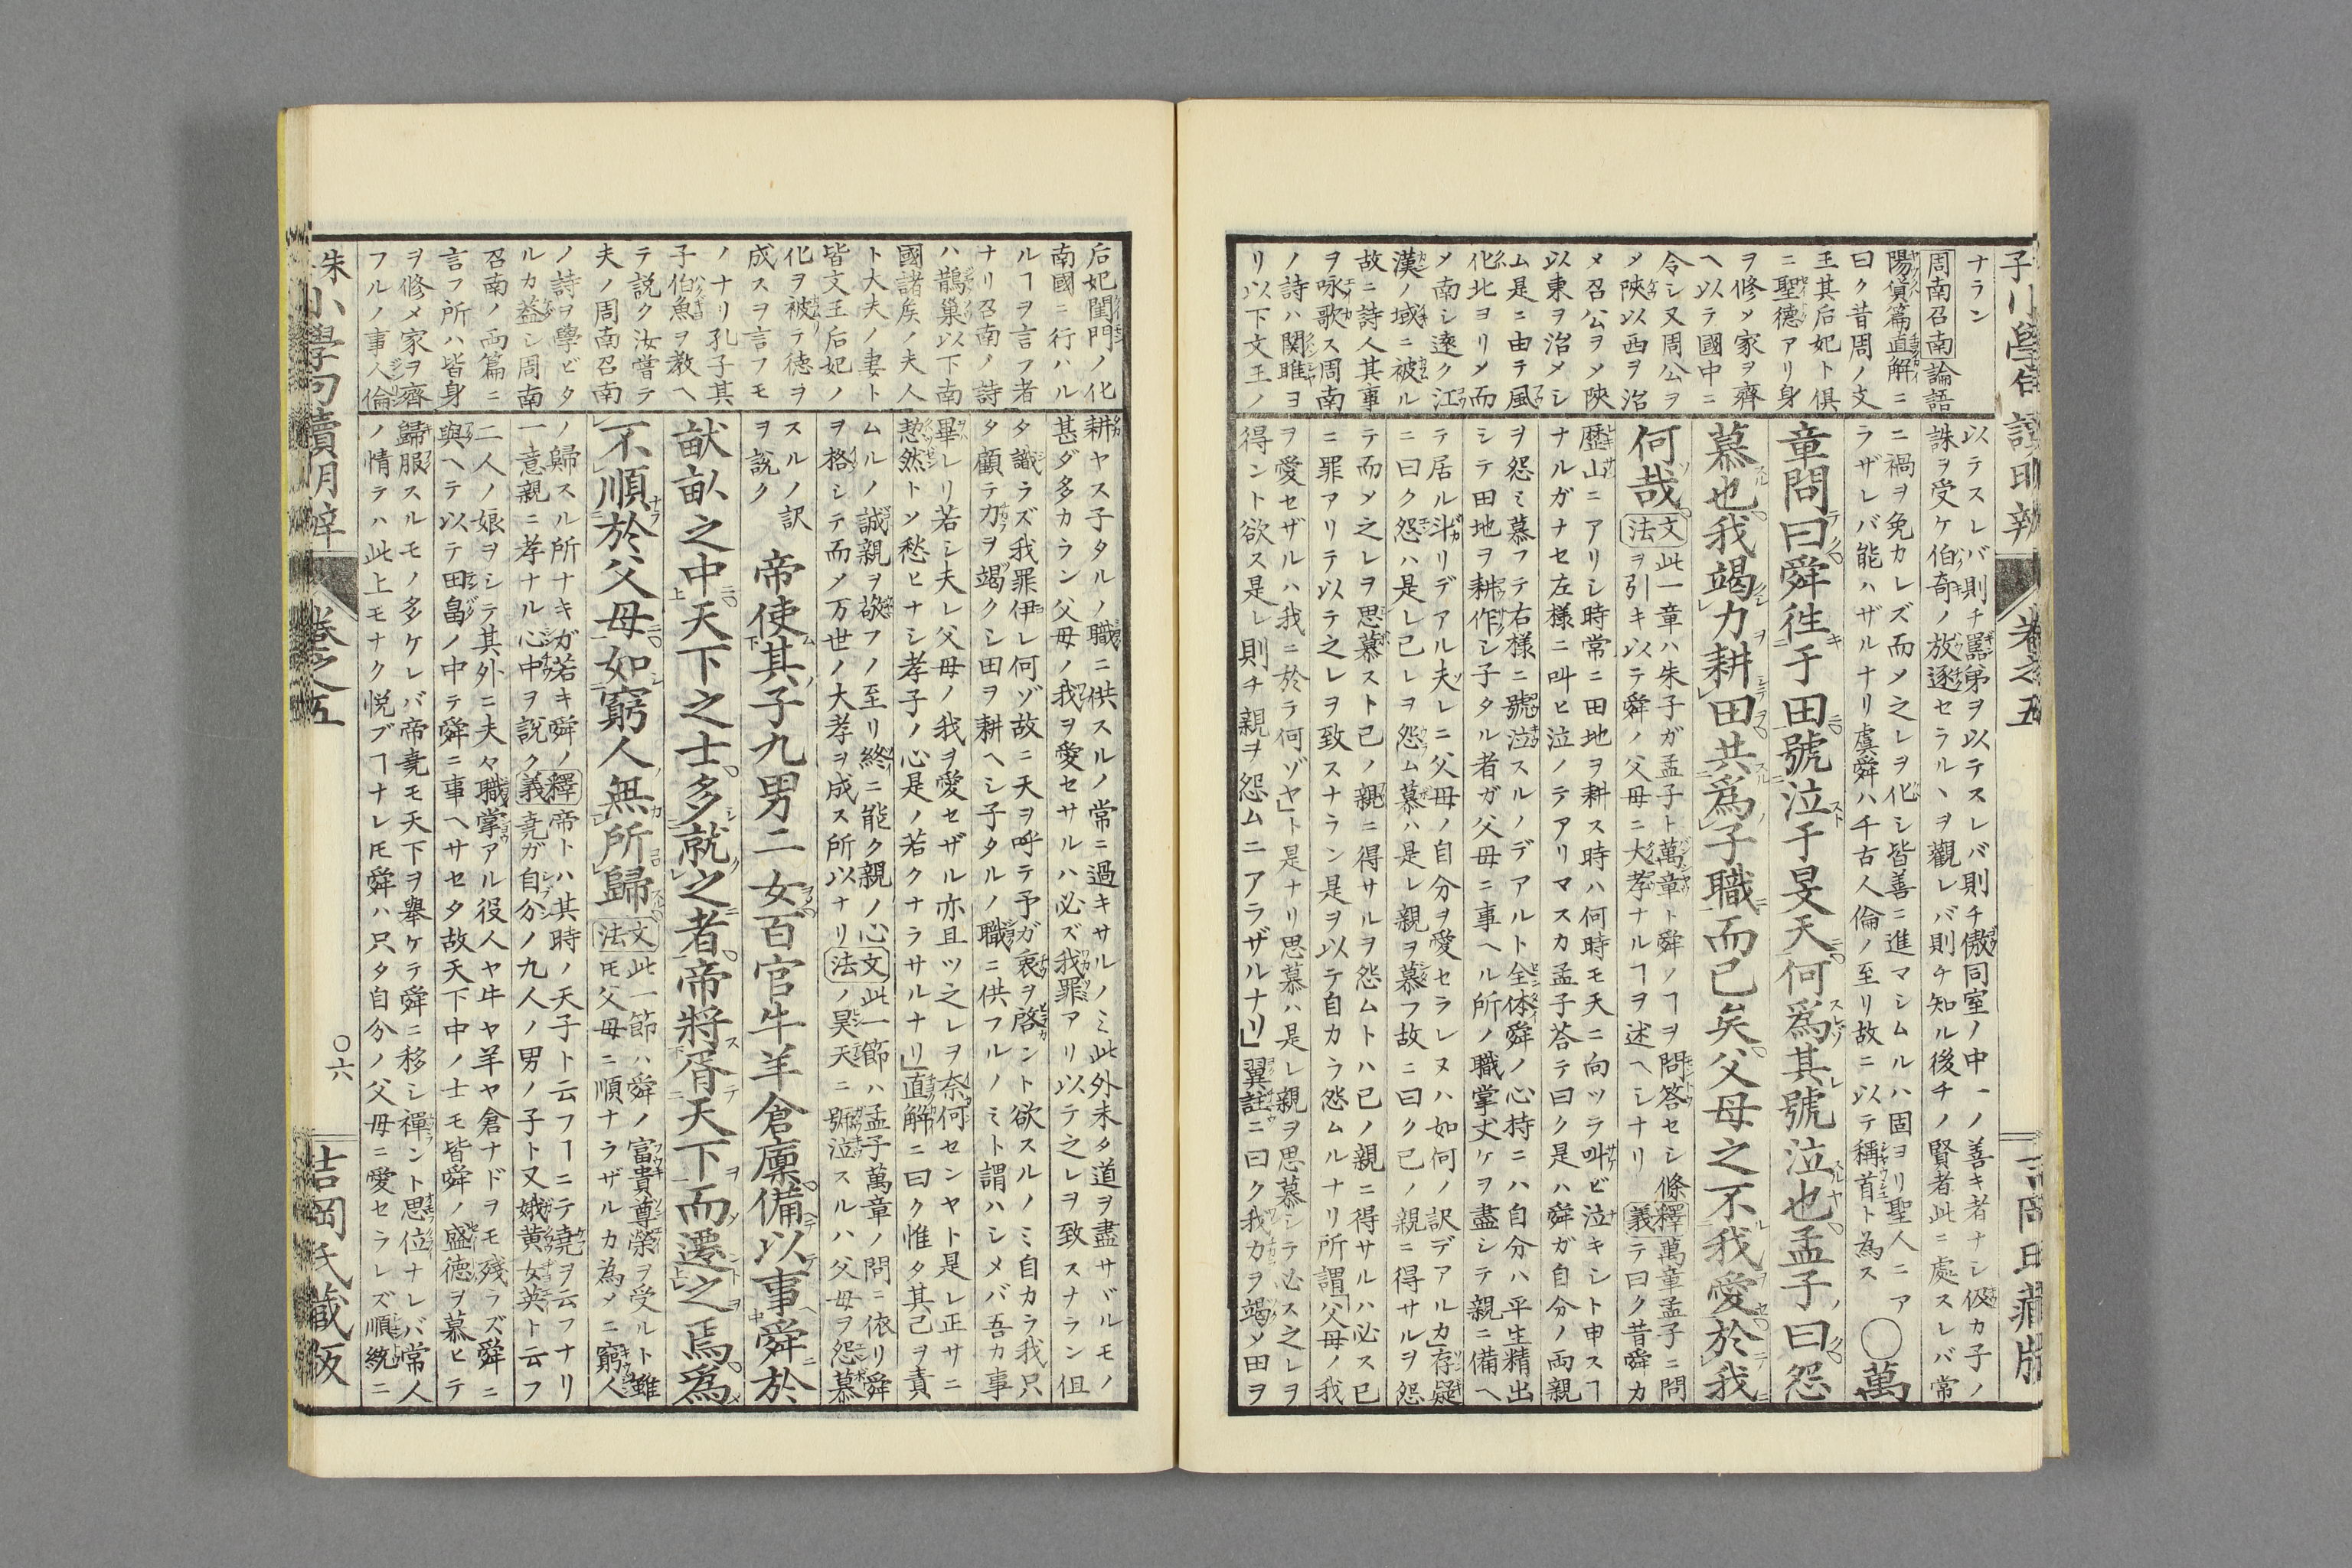 子小學句讀明辨
卷之五
吉岡氏藏版
ナラン
周南召南論語
陽貨篇直解ニ
曰ク昔周ノ文
王其后妃ト俱
ニ聖德アリ身
ヲ修メ家ヲ齊
ヘ以テ國中ニ
令シ又周公ヲ
〆陝以西ヲ治
メ召公ヲ〆陝
以東ヲ治メシ
ム是ニ由テ風
化北ヨリ〆而
〆南シ遠ク江
漢ノ域ニ被ル
故ニ詩人其事
ヲ咏歌ス周南
ノ詩ハ関雎ヨ
リ以下文王ノ
以テスレバ則チ嚚弟ヲ以テスレバ則チ傲同室ノ中一ノ善キ者ナシ伋カ子ノ
誅ヲ受ケ伯奇ノ放逐セラルヽヲ觀レバ則チ知ル後チノ賢者此ニ處スレバ常
ニ禍ヲ免カレズ而〆之レヲ化シ皆善ニ進マシムルハ固ヨリ聖人ニア
ラザレバ能ハザルナリ虞舜ハ千古人倫ノ至リ故ニ以テ稱首ト為ス
〇萬
章問曰舜徃于田號泣于旻天何爲其號泣也孟子曰怨
慕也我竭力耕田共爲子職而已矣父母之不我愛於我
何哉
文法此一章ハ朱子ガ孟子ト萬章ト舜ノヿヲ問答セシ條
ヲ引キ以テ舜ノ父母ニ大孝ナルヿヲ述ヘシナリ
釋義萬章孟子ニ問
テ曰ク昔舜カ
歷山ニアリシ時常ニ田地ヲ耕ス時ハ何時モ天ニ向ッラ叫ビ泣キシト申スヿ
ナルガナセ左様ニ叫ヒ泣ノテアリマスカ孟子荅テ曰ク是ハ舜ガ自分ノ両親
ヲ怨ミ慕フテ右様ニ號泣スルノデアルト全体舜ノ心持ニハ自分ハ平生精出
シテ田地ヲ耕作シ子タル者ガ父母ニ事ヘル所ノ職掌丈ケヲ盡シテ親ニ備ヘ
テ居ル斗リデアル夫レニ父母ノ自分ヲ愛セラレヌハ如何ノ訳デアルカ」存疑
ニ曰ク怨ハ是レ己レヲ怨ム慕ハ是レ親ヲ慕フ故ニ曰ク己ノ親ニ得サルヲ怨
テ而〆之レヲ思慕スト己ノ親ニ得サルヲ怨ムトハ己ノ親ニ得サルハ必ス已
ニ罪アリテ以テ之レヲ致スナラン是ヲ以テ自カラ怨ムルナリ所謂「父母ノ我
ヲ愛セザルハ我ニ於ラ何ゾヤ」ト是ナリ思慕ハ是レ親ヲ思慕シテ必ス之レヲ
得ント欲ス是レ則チ親ヲ怨ムニアラザルナリ」翼註ニ曰ク我カヲ竭〆田ヲ
后妃閨門ノ化
南國ニ行ハル
ルヿヲ言フ者
ナリ召南ノ詩
ハ鵲巢以下南
國諸矦ノ夫人
ト大夫ノ妻ト
皆文王后妃ノ
化ヲ被テ徳ヲ
成スヲ言フモ
ノナリ孔子其
子伯魚ヲ敎ヘ
テ説ク汝嘗テ
夫ノ周南召南
ノ詩ヲ學ビタ
ルカ葢シ周南
召南ノ両篇ニ
言フ所ハ皆身
ヲ修メ家ヲ齊
フルノ事人倫
耕ヤス子タルノ職ニ供スルノ常ニ過キサルノミ此外未タ道ヲ盡サバルモノ
甚ダ多カラン父母ノ我ヲ愛セサルハ必ズ我罪アリ以テ之レヲ致スナラン但
タ識ラズ我罪伊レ何ゾ故ニ天ヲ呼テ予ガ衷ヲ啓ント欲スルノミ自カラ我只
タ顧テ力ヲ竭クシ田ヲ耕ヘシ子タルノ職ニ供フルノミト謂ハシメバ吾カ事
畢レリ若シ夫レ父母ノ我ヲ愛セザル亦且ツ之レヲ奈何センヤト是レ正サニ
恝然トソ愁ヒナシ孝子ノ心是ノ若クナラサルナリ」直解ニ曰ク惟タ其己ヲ責
ムルノ誠親ヲ敬フノ至リ終ニ能ク親ノ心
ヲ格シテ而〆万世ノ大孝ヲ成ス所以ナリ
文法此一節ハ孟子萬章ノ問ニ依リ舜
ノ昊天ニ號泣スルハ父母ヲ怨慕
スルノ訳
ヲ説ク
帝使其子九男二女百官牛羊倉廩備以事舜於
畎畝之中天下之士多就之者帝將胥天下而遷之焉爲
不順於父母如窮人無所歸
文法此一節ハ舜ノ富貴尊榮ヲ受ルト雖
𪜈父母ニ順ナラザルカ為〆ニ窮人
ノ歸スル所ナキガ若キ舜ノ
一意親ニ孝ナル心中ヲ説ク
釋義帝トハ其時ノ天子ト云フヿニテ堯ヲ云フナリ
堯ガ自分ノ九人ノ男ノ子ト又娥黄女英ト云フ
二人ノ娘ヲシテ其外ニ夫々職掌アル役人ヤ牛ヤ羊ヤ倉ナドヲモ殘ラズ舜ニ
與ヘテ以テ田畠ノ中テ舜ニ事ヘサセタ故天下中ノ士モ皆舜ノ盛徳ヲ慕ヒテ
歸服スルモノ多ケレバ帝堯モ天下ヲ舉ケテ舜ニ移シ禪ント思位ナレバ常人
ノ情テハ此上モナク悦ブヿナレ𪜈舜ハ只タ自分ノ父母ニ愛セラレズ順統ニ
朱小學句讀明辨
卷之五
〇六
吉岡氏藏版